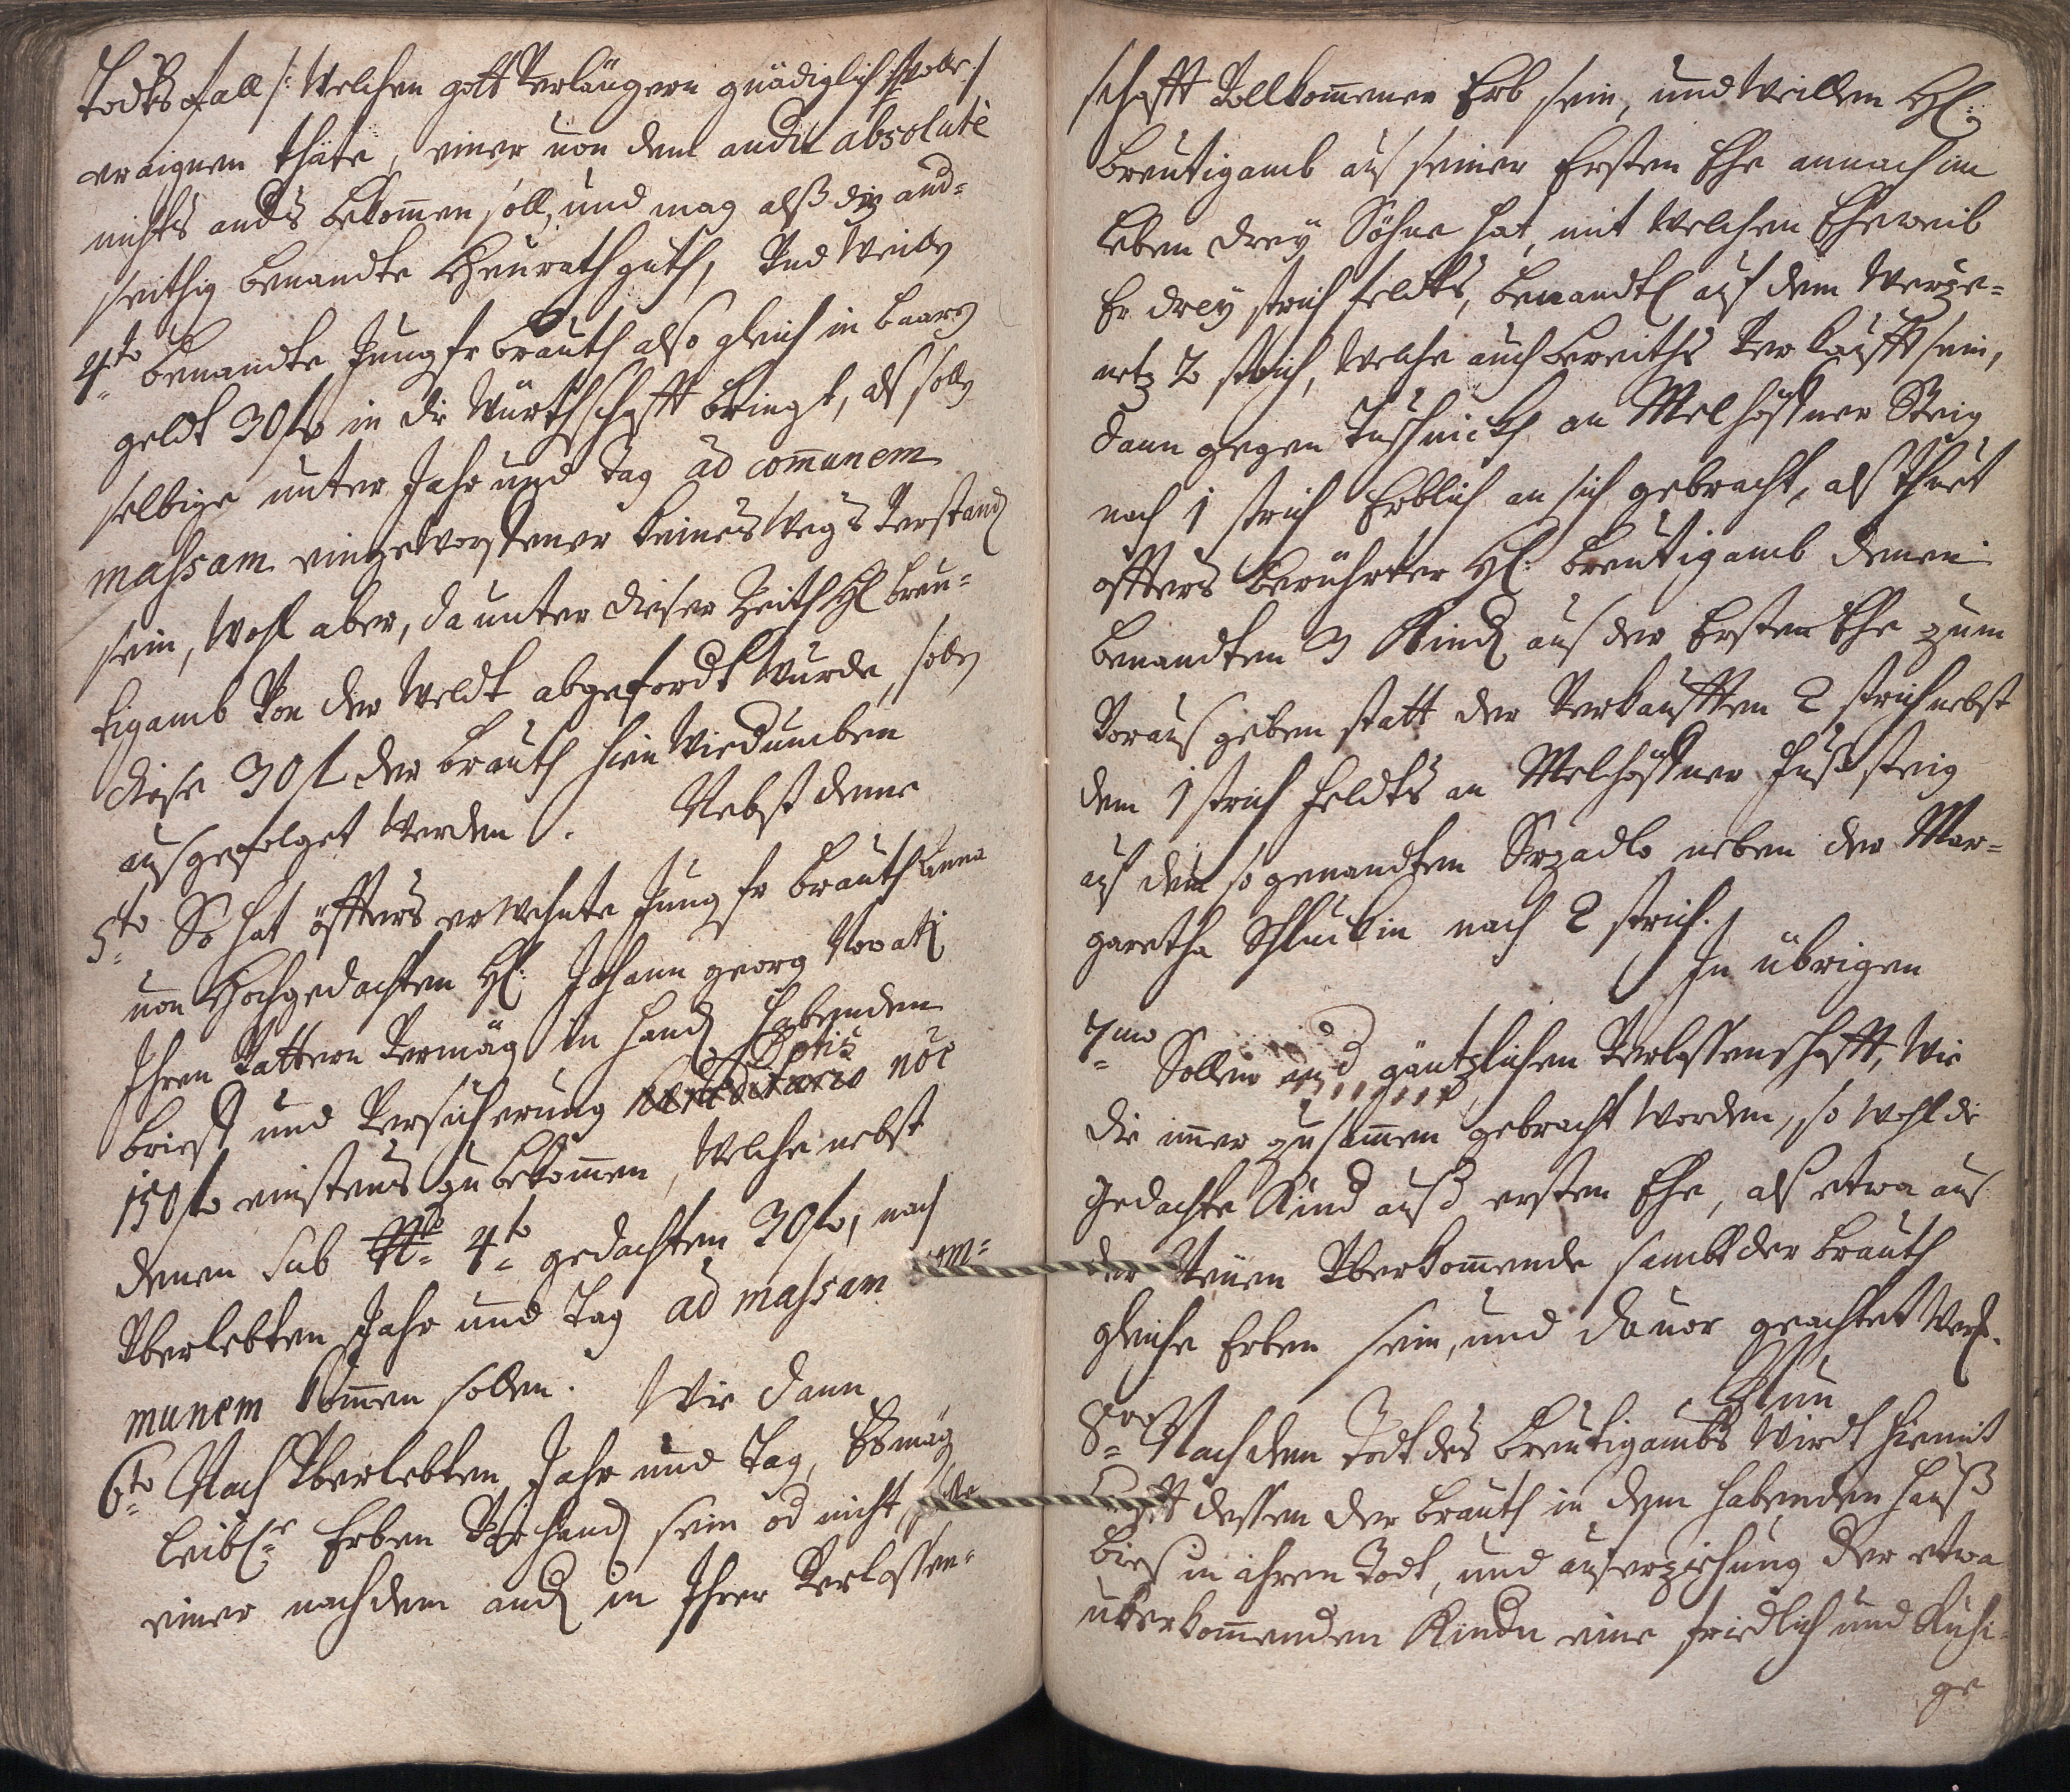 Todts fall /: Welchen gott Verlängern gnädiglich wolle :/
eraignen thäte, einer von dem andn absolutè
nichts ands bekom̄en soll, und mag alß die and-
seithig benandte Heurathguth, Und Weille
4to benandte Jungfr brauth also gleich in baaren
geldt 30 fl in die Würthschafft bringt, als solle
selbige unter Jahr und Tag ad com̄unem
massam eingeworffener keines Wegs Verstand
sein, Wohl aber, da unter dieser Zeith H breu-
tigamb Von der Weldt abgefordt Wurde, solle
diese 30 fl der brauth hin Wiedumben
ausgefolget Werden. Nebst deme
5to So hat öffters erwehnte Jungfr brauth Anna
von Hochgedachten H: Johann georg
Ihren Vattern Vermög in Hand habenden
brieff und Versicherung
150 fl einstens zu bekom̄en, Welche nebst
denen sub 4to gedachten 30 fl, nach
Überlebten Jahr und Tag ad massam com-
munem kom̄en sollen. Wie dann
6to Nach Überlebten Jahr und Tag, Es mag
leibl: Erben Vorhand sein od nicht, solle
einer nach dem and in Ihrer Verlassen-
schafft Vollkom̄ener Erb sein, und Weillen H:
breutigamb aus seiner Ersten Ehe annoch im
leben dreÿ Söhne hat, mit Welchen Eheweib
Er dreÿ strich feldts, benandtl auf dem
2 strich, Welche auch bereiths Verkaufft sein,
dann gegen an Melhöffner Steig
noch 1 strich Erblich an sich gebracht, als thuet
öffters berührter H: breutigamb denen
benandten 3 Kind aus der Ersten Ehe zum
Voraus geben statt der Verkaufften 2 strich nebst
dem 1 strich feldts an Melhöffner fußsteig
auf dem so genandten neben der Mar-
garetha noch 2 strich.
In übrigen
7mo Sollen gäntzlichen Verlassenschafft, Wie
die im̄er zusam̄en gebracht Worden, so Wohl die
gedachte Kind auß ersten Ehe, als etwa aus
der Neüen Überkom̄ende sambt der brauth
gleiche Erben sein, und dauor geachtet Werd.
Nun
8vo Nach dem Todt des breutigambs Wirdt hiemit
Krafft dessen der brauth in dem habenden Hauß
bies in ihren Todt, und auferziehung der etwa
überkom̄enden Kindn eine friedlich und Ruhi-
ge